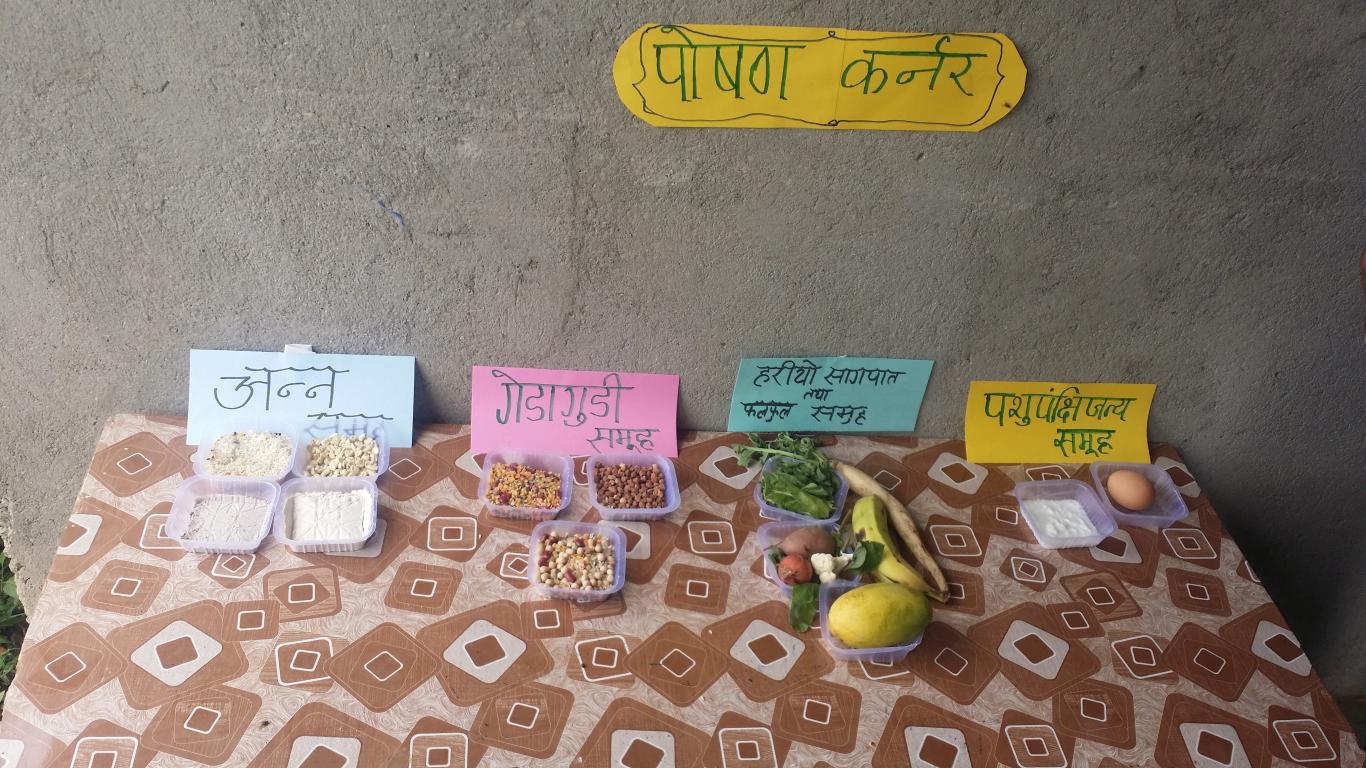 पोषण कर्नर
अन्न
समुह
गेडागुडी
समूह
हरीयो सागपात
तथा
फलफुल समुह
पशुपंक्षिजन्य
समूह